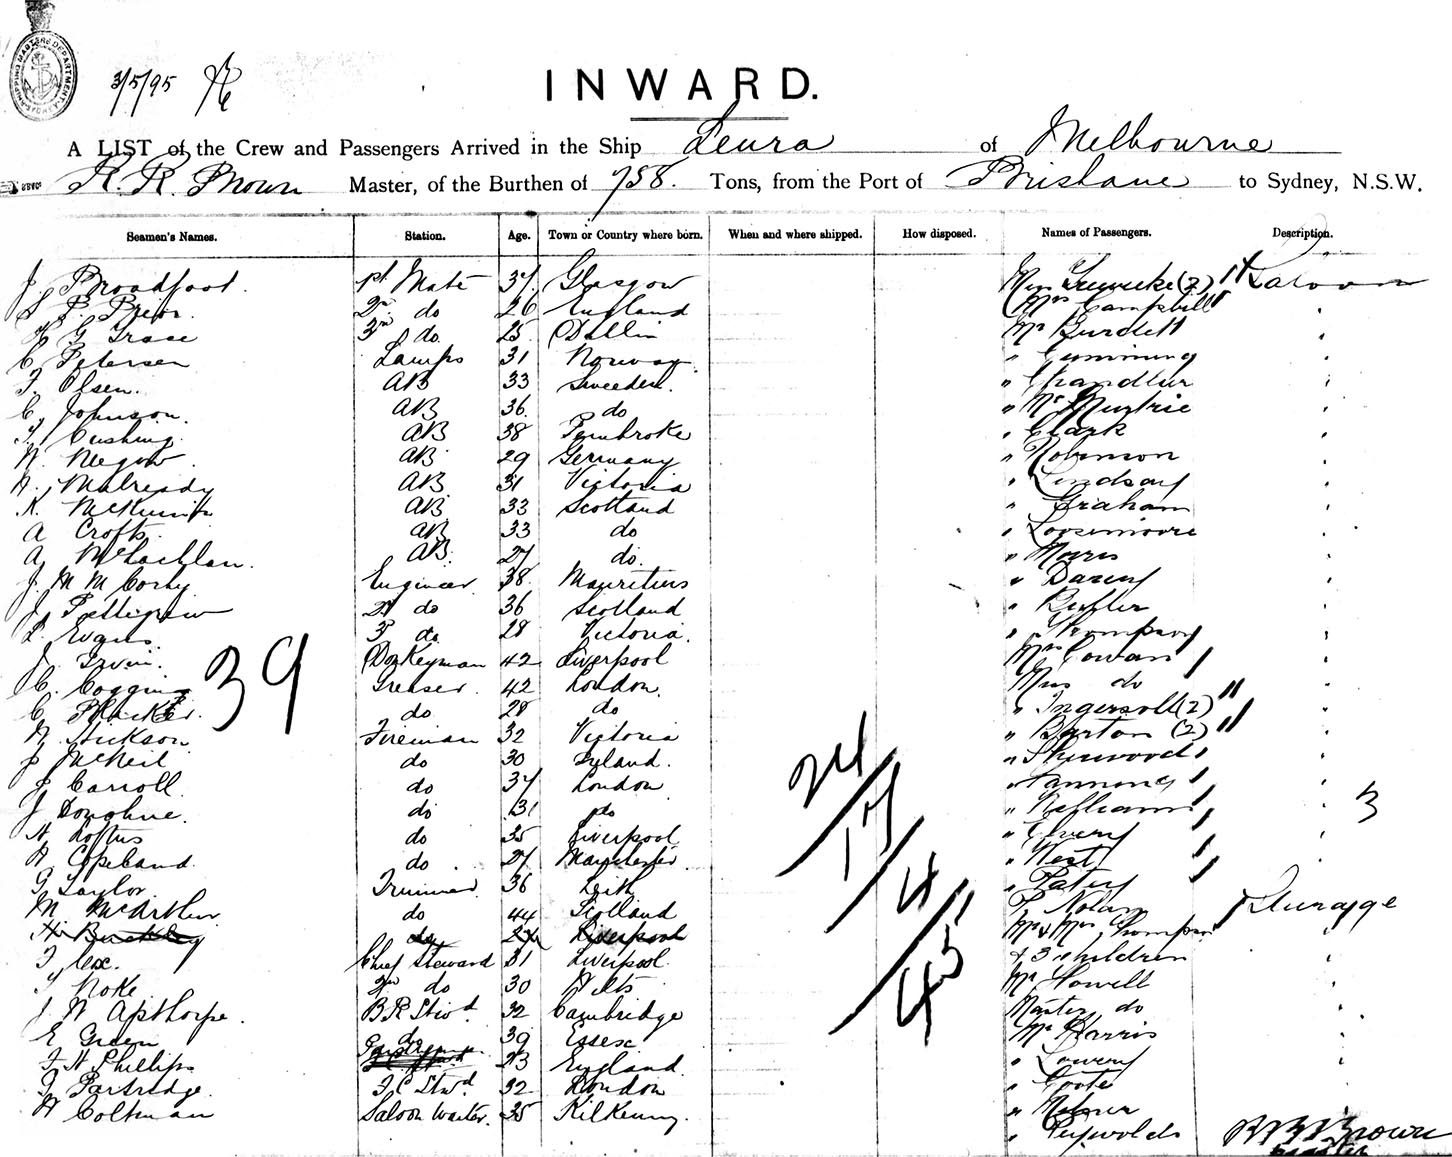 SHIPPING MASTERS DEPARTMENT
3/5/95
INWARD.
A LIST of the Crew and Passengers Arrived in the Ship Leura of Melbourne
Brown Master, of the Burthen of 758. Tons, from the Port of Brisbane to Sydney, N.S.W.
Seamen's Names. Station. Age. Town or Country where born. When and where shipped. How disposed. Names of Passengers. Description.
J. Broadfoot. 1st Mate 37 Glasgow (2) 11 Saloon
2nd do 26 England (Mrs Campbell
G Grace 3rd do. 25 Dublin Mr Burdett
C Petersen Lamps 31 Norway. " Cumming
F. Olsen. AB 33 Sweeden. " Chandler
C. Johnson. AB 36. do
Cushing. AB 38 Pembroke " Clark
AB 29 Germany " Robinson
Mulready AB 31 Victoria " Lindsay
K. AB 33 Scotland " Graham
A Crofts. AB 33 do " Loosemoore
A McLachlan. AB. 27 do.
J. M M Corky Engineer 38. Mauritius
J. Pettigrew 2nd do 36 Scotland " Butler
Evans 3rd do 28 Victoria. " Thompson
J. Donkeyman 42 Liverpool Mrs Cowan
39
C. Coggins Greaser. 42 London. Miss do
C. do 28 do " Ingersoll (2) "
Hickson. Fireman 32 Victoria " Burton (2) "
J McNeil do 30 Ireland. " Sherwood
J Carroll do 37 London " Fanning
J Donohue. do 31 do 3
H Loftus do 35 Liverpool
H Copeland. do 27 Manchester " West
G Taylor. Trimmer 36 Leith
M McArthur do 44 Scotland Nolan Steerage
H. Buckley do Liverpool Mr & Mrs Thompson
F. Cox. Chief Steward 31 Liverpool. & 3 children
Noke 2nd do 30 Wilts Mr Howell
J. W Apthorpe. B R Stwd. 32 Cambridge Master do
E Green do 39 Essex Mr Harris
F. H Phillips 23 England. " Lowery
Partridge. F.C Stwd. 32 London " Coote
H Coltman Saloon Waiter. 35 Kilkenny.
" Reynolds
Brown
Master
24
17
4
45